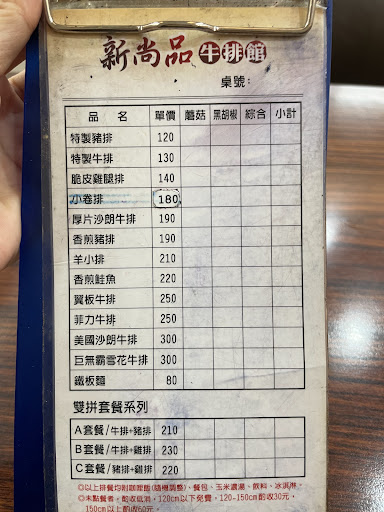 新尚品牛排館
桌號:
品 名 單價 蘑菇 黑胡椒 綜合 小計
特製豬排 120
特製牛排 130
脆皮雞腿排 140
小卷排 180
厚片沙朗牛排 190
香煎豬排 190
羊小排 210
香煎鮭魚 220
翼板牛排 250
菲力牛排 250
美國沙朗牛排 300
巨無霸雪花牛排 300
鐵板麵 80
雙拼套餐系列
A套餐/牛排+豬排 210
B套餐/牛排+雞排 230
C套餐/豬排+雞排 220
◎以上排餐均附鐵板麵(隨機調整)、餐包、玉米濃湯、飲料、冰淇淋。
◎未點餐者,酌收低消,120cm以下免費,120-150cm酌收30元,
150cm以上酌收60元。